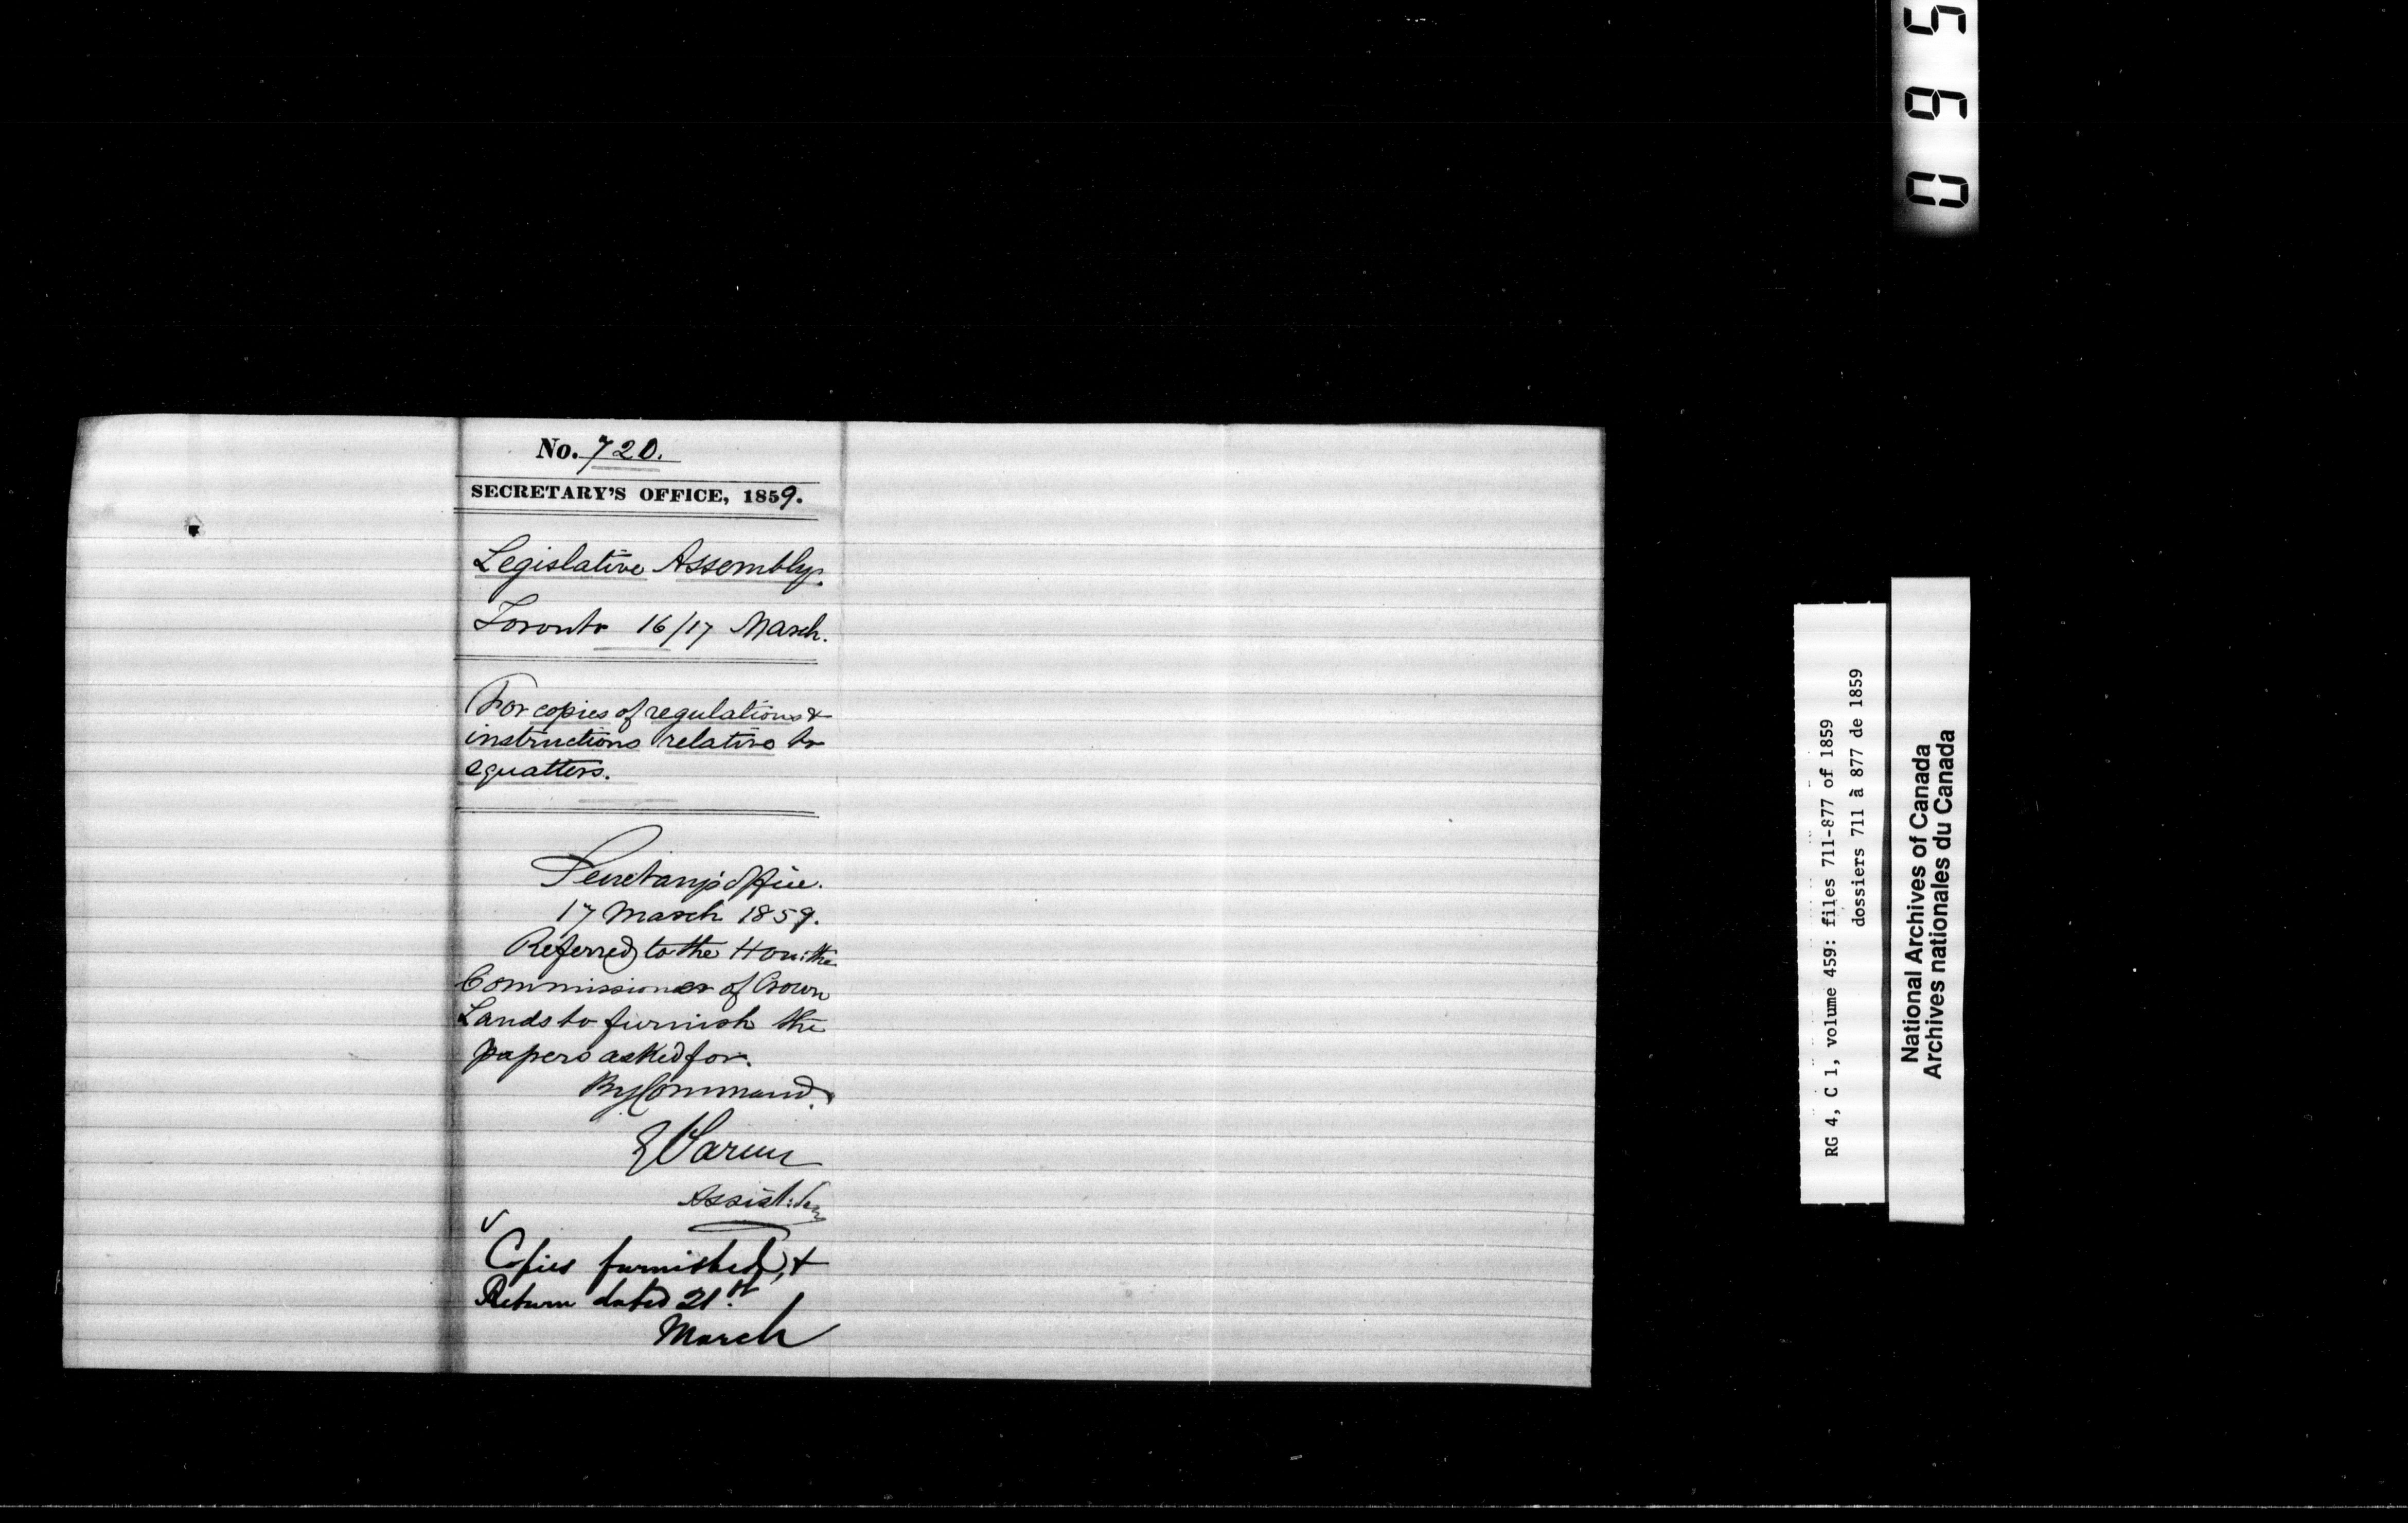 No. 720.
SECRETARY'S OFFICE, 1859.
Legislative Assembly.
Toronto 16/17 March.
For copies of regulations &
instructions relative to
squatters.
Secretary's Office.
17 March 1859.
Referred to the Hon: the
Commissioner of Crown
Lands to furnish the
papers asked for.
By Command.
Assist: Secy
Copies furnished, &
Return dated 21st.
March
095
RG 4, C 1, volume 459: files 711-877 of 1859
dossiers 711 à 877 de 1859
National Archives of Canada
Archives nationales du Canada